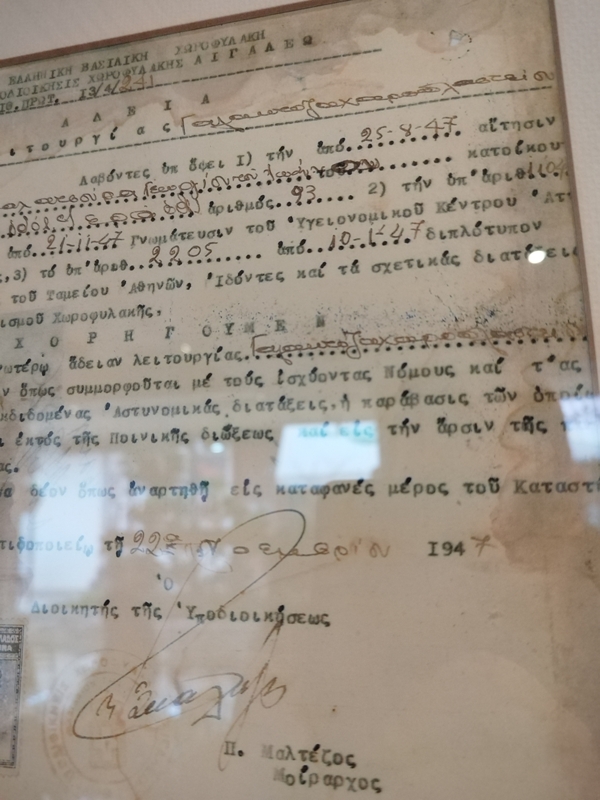 ΕΛΛΗΝΙΚΗ ΒΑΣΙΛΙΚΗ ΧΩΡΟΦΥΛΑΚΗ
ΟΔΙΟΙΚΗΣΙΣ ΧΩΡΟΦΥΛΑΚΗΣ ΑΙΓΑΛΕΩ
ΙΘ.ΠΡΩΤ. 13/4/
Α Δ Ε Ι Α
ιτουργίας Γαλακτοζαχαροπλαστείου
Λαβόντες ὑπ ὄψει 1) τήν ἀπό 25-8-47 αἴτησιν
Γεωργίου τοῦ κατοίκου
ἀριθμός 93 2) τήν ὑπ' ἀριθ.
ἀπό 21-11-47 Γνωμάτευσιν τοῦ Ὑγειονομικοῦ Κέντρου
,3) τό ὑπ' ἀριθ. 2205 ἀπό 10-1-47 διπλότυπον
τοῦ Ταμείου Ἀθηνῶν, Ἰδόντες καί τά σχετικάς διατάξεις
ισμοῦ Χωροφυλακῆς,
Χ Ο Ρ Η Γ Ο Υ Μ Ε Ν
ωτέρῳ ἄδειαν λειτουργίας Γαλακτοζαχαροπλαστείου
ν ὅπως συμμορφοῦται μέ τούς ἰσχύοντας Νόμους καί τ'ας
κδιδομένας Ἀστυνομικάς διατάξεις,ἡ παράβασις τῶν ὁποί
ι ἐκτός τῆς Ποινικῆς διώξεως καί εἰς τήν ἄρσιν τῆς
ας.
δέον ὅπως ἀναρτηθῇ εἰς καταφανές μέρος τοῦ Καταστή
τῇ 22α Νοεμβρίου 1947
Ὁ
Διοικητής τῆς Ὑποδιοικήσεως
Π. Μαλτέζος
Μοίραρχος